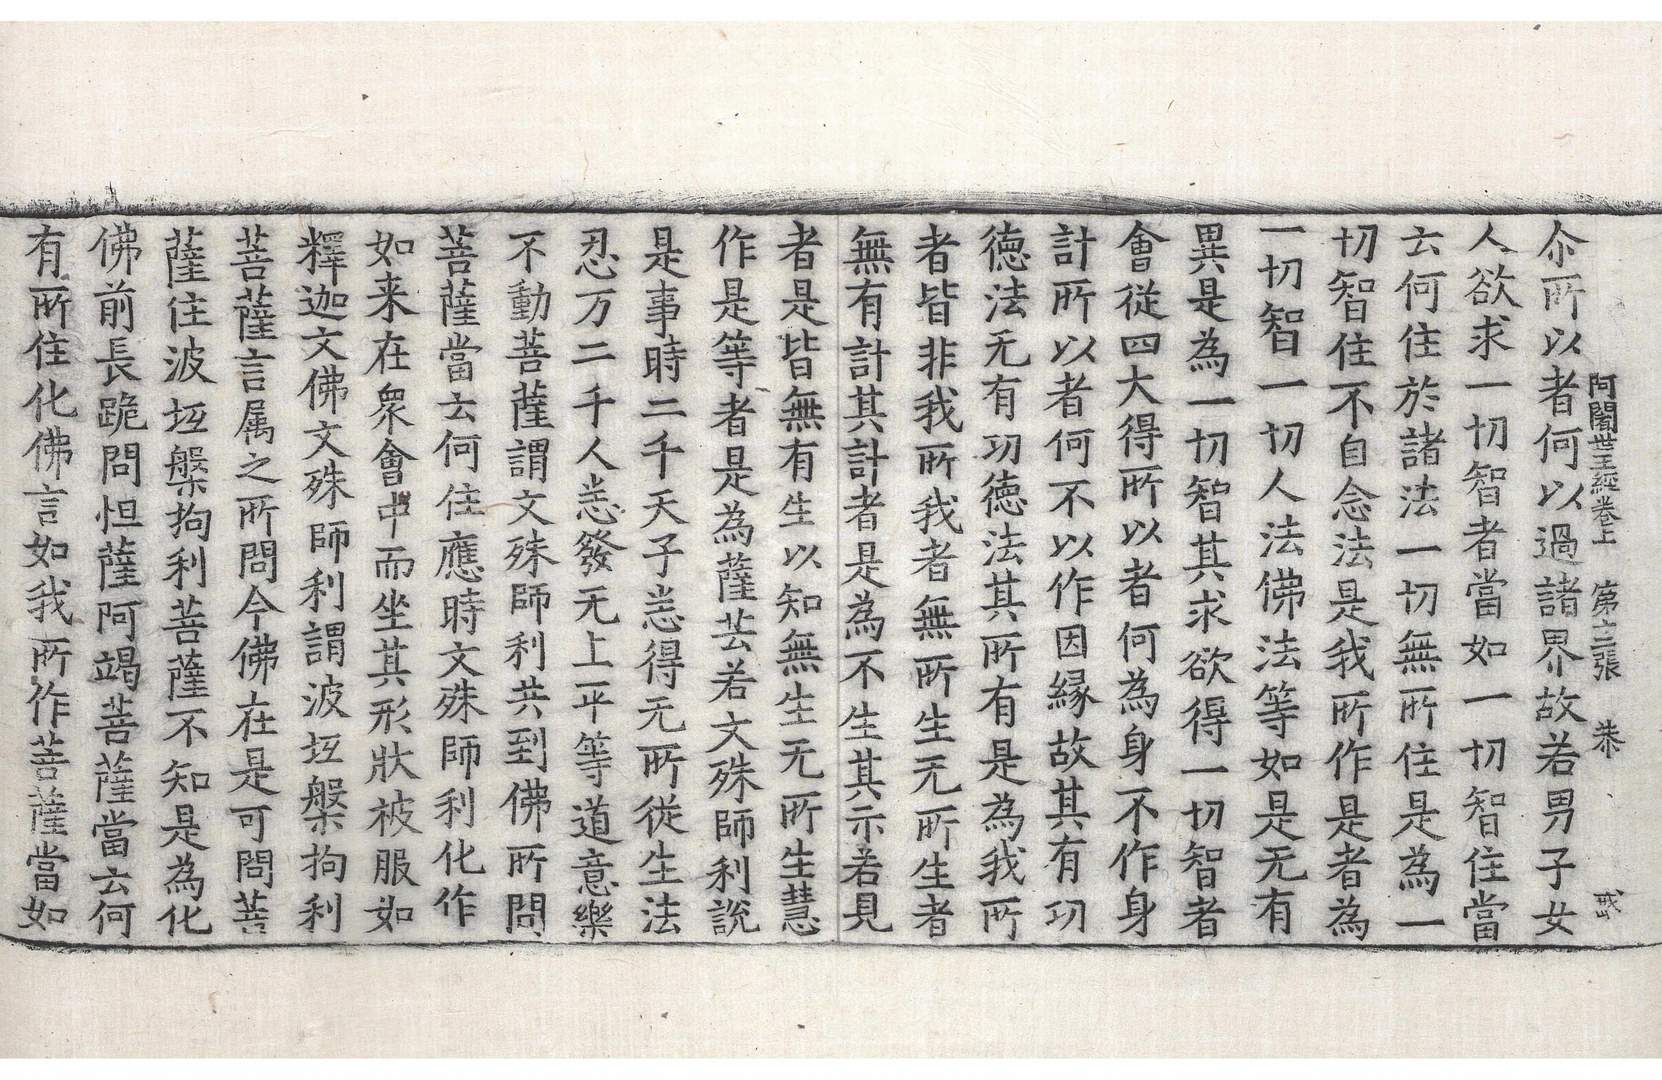 阿闍世王經卷上 第十三張 㳟
尒所以者何以過諸界故若男子女
人欲求一切智者當如一切智住當
云何住於諸法一切無所住是為一
切智住不自念法是我所作是者為
一切智一切人法佛法等如是无有
異是為一切智其求欲得一切智者
會從四大得所以者何為身不作身
計所以者何不以作因緣故其有功
德法无有功德法其所有是為我所
者皆非我所我者無所生无所生者
無有計其計者是為不生其示若見
者是皆無有生以知無生无所生慧
作是等者是為薩芸若文殊師利說
是事時二千天子悉得无所從生法
忍万二千人悉發无上平等道意樂
不動菩薩謂文殊師利共到佛所問
菩薩當云何住應時文殊師利化作
如来在衆會中而坐其形狀被服如
釋迦文佛文殊師利謂波坻槃拘利
菩薩言属之所問今佛在是可問菩
薩住波坻槃拘利菩薩不知是為化
佛前長跪問怛薩阿竭菩薩當云何
有所住化佛言如我所作菩薩當如